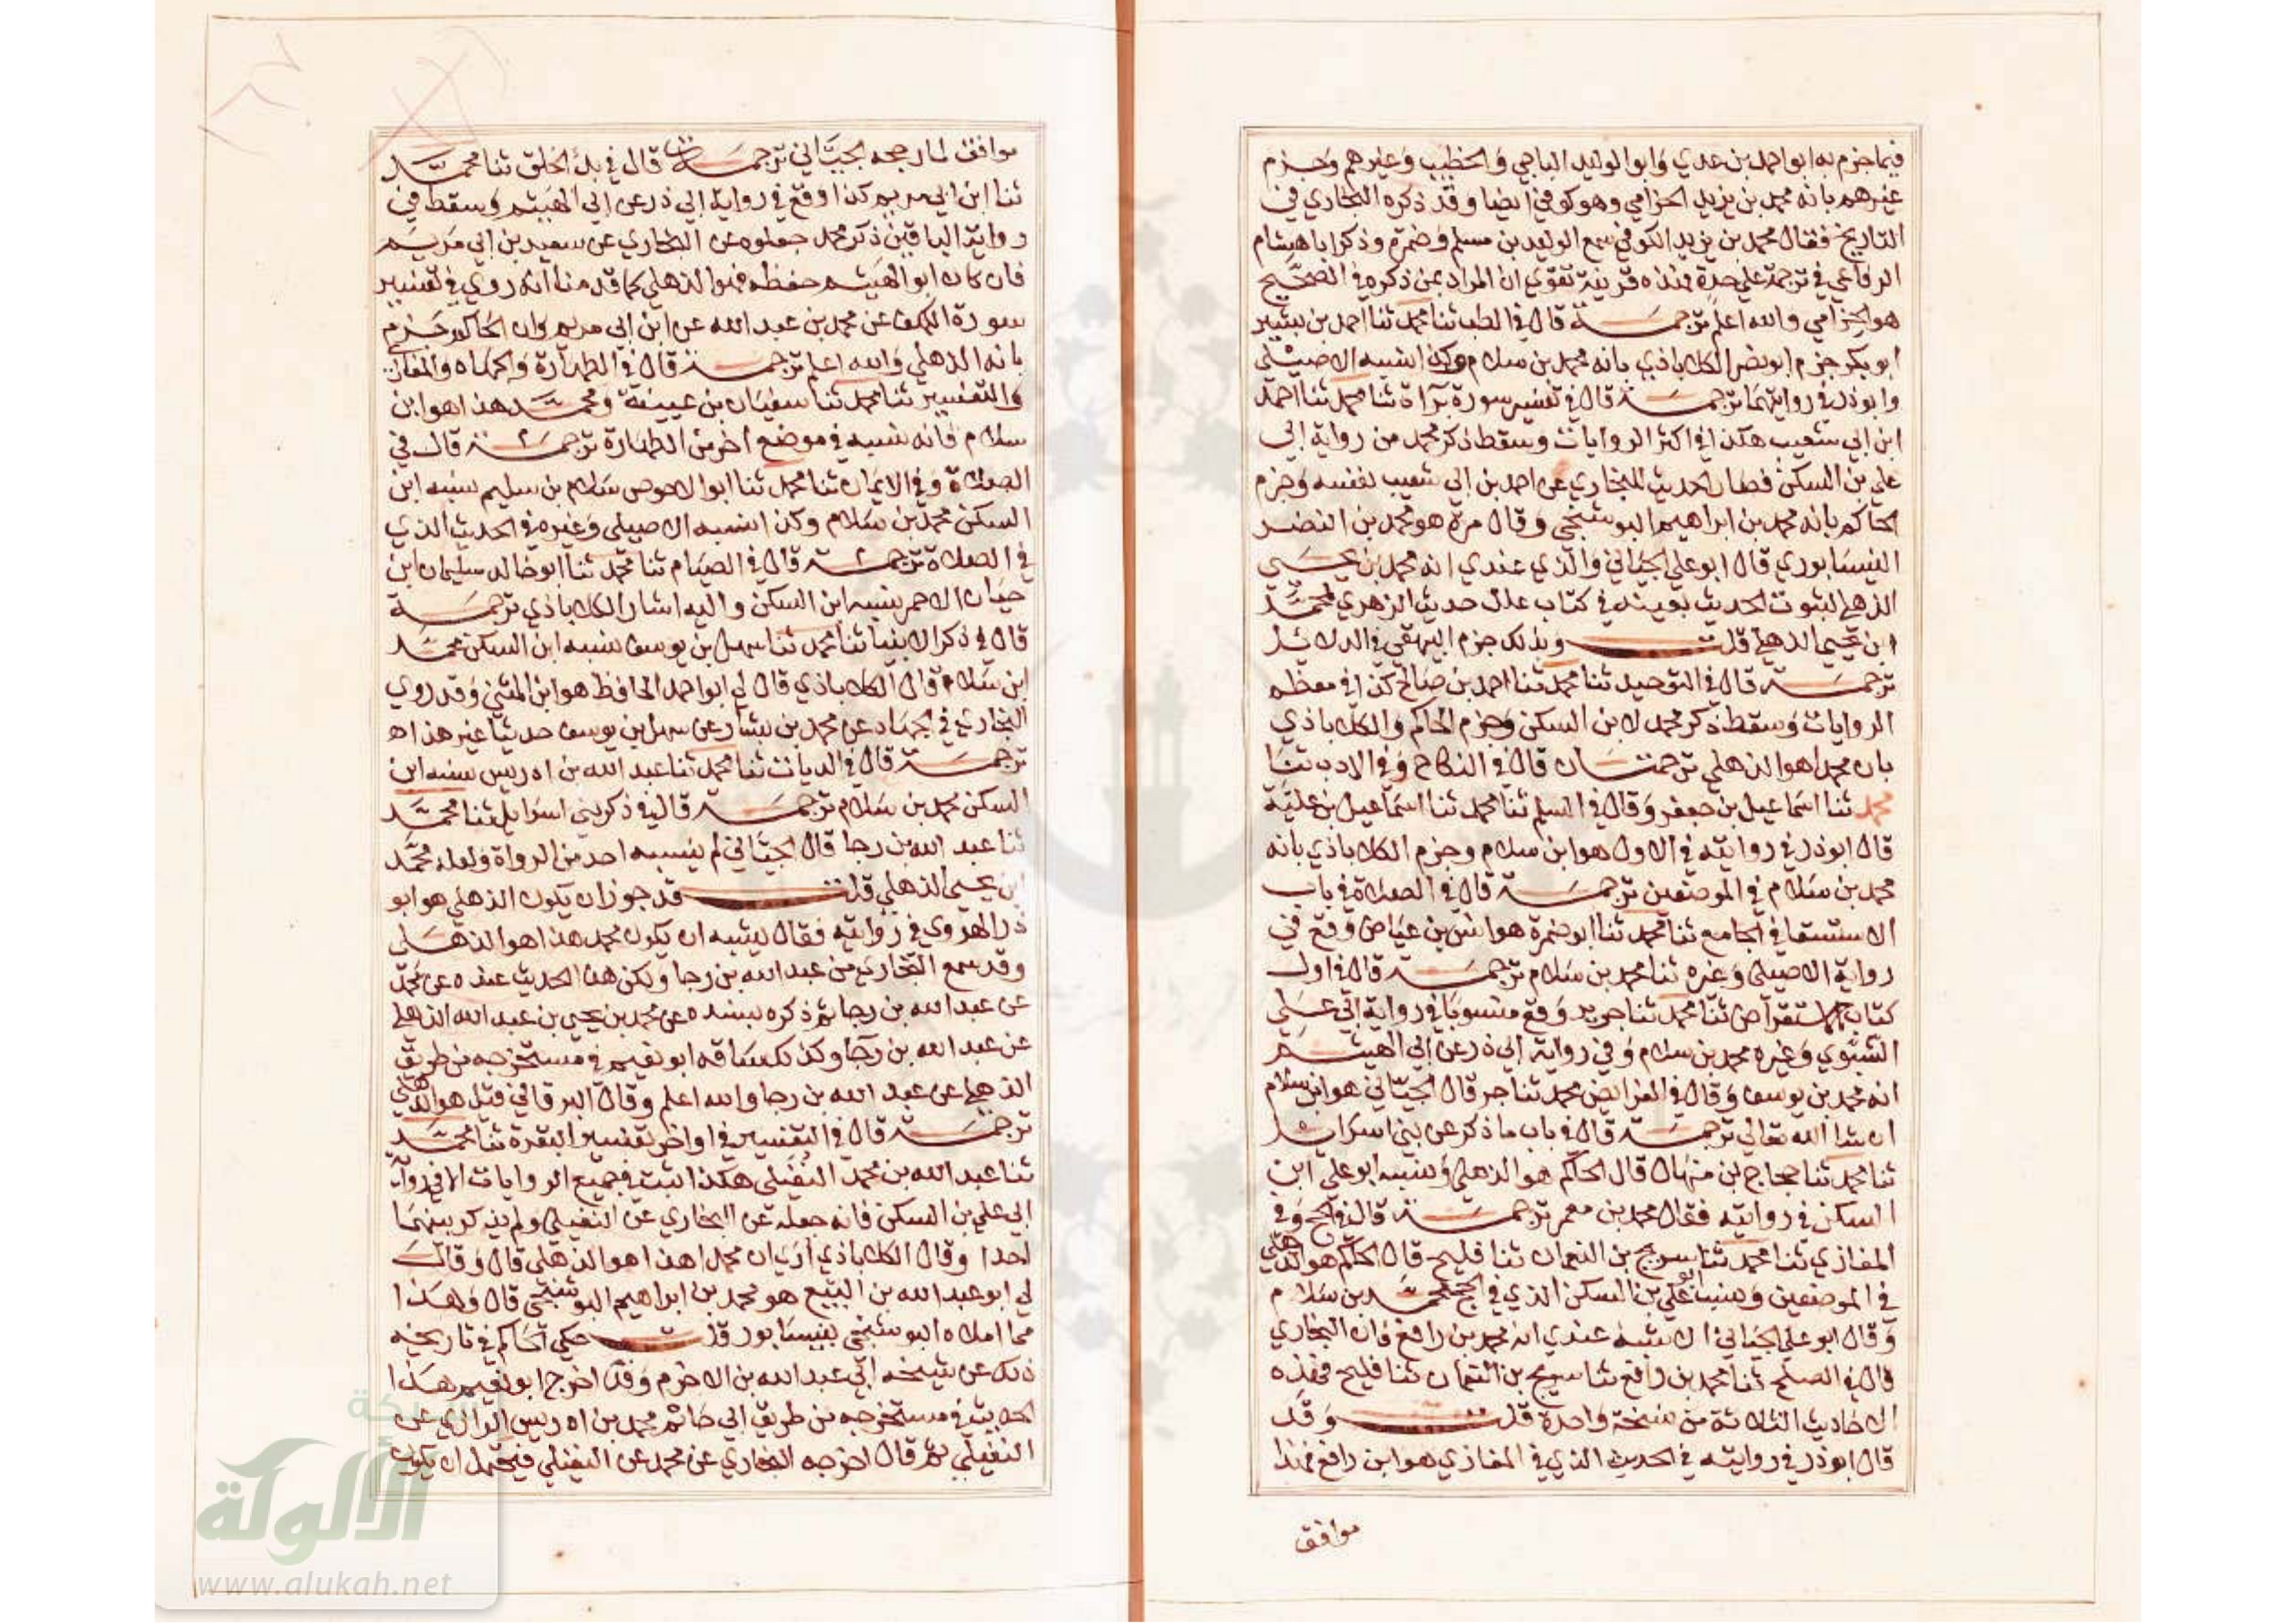 فيما جزم به ابو احمد بن عدي وابو الوليد الباجي والخطيب وغيرهم وجزم
غيرهم بانه محمد بن يزيد الحزامي وهو كوفي ايضا وقد ذكره البخاري في
التاريخ فقال محمد بن يزيد الكوفي سمع الوليد بن مسلم وضمرة وذكر ابا هشام
الرفاعي في ترجمة علي حدة فهذه قرينة تقوي ان المراد بمن ذكره في الصحيح
هو الحزامي والله اعلم ترجمة قال في الطب ثنا محمد ثنا احمد بن بشير
ابو بكر جزم ابو نصر الكلاباذي بانه محمد بن سلام وكذا نسبه الاصيلي
وابو ذر في روايتهما ترجمة قال في تفسير سورة براة ثنا محمد ثنا احمد
ابن ابي شعيب هكذا في اكثر الروايات وسقط ذكر محمد من رواية ابي
علي بن السكن فصار الحديث للبخاري عن احمد بن ابي شعيب نفسه وجزم
الحاكم بانه محمد بن ابراهيم البوشنجي وقال مرة هو محمد بن النضر
النيسابوري قال ابو علي الجياني والذي عندي انه محمد بن يحيي
الذهلي لثبوت الحديث بعينه في كتاب علل حديث الزهري لمحمد
ابن يحيي الذهلي قلت وبذلك جزم البيهقي في الدلائل
ترجمة قال في التوحيد ثنا محمد ثنا احمد بن صالح كذا في معظم
الروايات وسقط ذكر محمد لابن السكن وجزم الحاكم والكلاباذي
بان محمدا هو الذهلي ترجمتان قال في النكاح وفي الادب ثنا
محمد ثنا اسماعيل بن جعفر وقال في السلم ثنا محمد ثنا اسماعيل بن علية
قال ابو ذر في روايته في الاول هو ابن سلام وجزم الكلاباذي بانه
محمد بن سلام في الموضعين ترجمة قال في الصلاة في باب
الاستسقا في الجامع ثنا محمد ثنا ابو ضمرة هو انس بن عياض وقع في
رواية الاصيلي وغيره ثنا محمد بن سلام ترجمة قال في اول
كتاب الاستقراض ثنا محمد ثنا جرير وقع منسوبا في رواية ابي علي
الشبوي وغيره محمد بن سلام وفي رواية ابي ذر عن ابي الهيثم
انه محمد بن يوسف وقال في الفرايض محمد ثنا جر قال الجياني هو ابن سلام
ان شا الله تعالي ترجمة قال في باب ما ذكر عن بني اسرائيل
ثنا محمد ثنا حجاج بن منهال قال الحاكم هو الذهلي ونسبه ابو علي ابن
السكن في روايته فقال محمد بن معمر ترجمة قال في الحج وفي
المغازي ثنا محمد ثنا سريج بن النعمان ثنا فليح قال الحاكم هو الذهلي
في الموضعين ونسب ابو علي بن السكن الذي في الحج محمد بن سلام
وقال ابو علي الجياني الاشبه عندي انه محمد بن رافع فان البخاري
قال في الصلح ثنا محمد بن رافع ثنا سريج بن النعمان ثنا فليح فهذه
الاحاديث الثلاثة من نسخة واحدة قلت وقد
قال ابو ذر في روايته في الحديث الذي في المغازي هو ابن رافع فهذا
موافق
موافق لما رجحه الجياني ترجمة قال في بدء الخلق ثنا محمد
ثنا ابن ابي مريم كذا وقع في رواية ابي ذر عن ابي الهيثم وسقط في
رواية الباقين ذكر محمد جعلوه عن البخاري عن سعيد بن ابي مريم
فان كان ابو الهيثم حفظه فهو الذهلي كما قدمنا انه روي في تفسير
سورة الكهف عن محمد بن عبد الله عن ابن ابي مريم وان الحاكم جزم
بانه الذهلي والله اعلم ترجمة قال في الطهارة والجهاد والمغازي
والتفسير ثنا محمد ثنا سفيان بن عيينة ومحمد هذا هو ابن
سلام فانه نسبه في موضع اخر من الطهارة ترجمة قال في
الصلاة وفي الايمان ثنا محمد ثنا ابو الاحوص سلام بن سليم نسبه ابن
السكن محمد بن سلام وكذا نسبه الاصيلي وغيره في الحديث الذي
في الصلاة ترجمة قال في الصيام ثنا محمد ثنا ابو خالد سليمان ابن
حيان الاحمر ينسبه ابن السكن واليه اشار الكلاباذي ترجمة
قال في ذكر الانبيا ثنا محمد ثنا سهل بن يوسف نسبه ابن السكن محمد
ابن سلام قال الكلاباذي قال لي ابو احمد الحافظ هو ابن المثني وقد روي
البخاري في الجهاد عن محمد بن بشار عن سهل بن يوسف حديثا غير هذا اه
ترجمة قال في الديات ثنا محمد ثنا عبد الله بن ادريس نسبه ابن
السكن محمد بن سلام ترجمة قال في ذكر بني اسرائيل ثنا محمد
ثنا عبد الله بن رجا قال الجياني لم ينسبه احد من الرواة ولعله محمد
ابن يحيي الذهلي قلت قد جوز ان يكون الذهلي هو ابو
ذر الهروي في روايته فقال يشبه ان يكون محمد هذا هو الذهلي
وقد سمع البخاري من عبد الله بن رجا ولكن هذا الحديث عنده عن محمد
عن عبد الله بن رجا ثم ذكره بسنده عن محمد بن يحيي بن عبد الله الذهلي
عن عبد الله بن رجا وكذلك ساقه ابو نعيم في مستخرجه من طريق
الذهلي عن عبد الله بن رجا والله اعلم وقال البرقاني قيل هو الذهلي
ترجمة قال في التفسير في اواخر تفسير البقرة ثنا محمد
ثنا عبد الله بن محمد النفيلي هكذا ثبت في جميع الروايات الا في رواية
ابي علي بن السكن فانه جعله عن البخاري عن النفيلي ولم يذكر بينهما
احدا وقال الكلاباذي اري ان محمدا هذا هو الذهلي قال وقال
لي ابو عبد الله بن البيع هو محمد بن ابراهيم البوشنجي قال وهذا
مما املاه البوشنجي بنيسابور قلت حكي الحاكم في تاريخه
ذلك عن شيخه ابي عبد الله بن الاخرم وقد اخرج ابو نعيم هذا
الحديث في مستخرجه من طريق ابي حاتم محمد بن ادريس الرازي عن
النفيلي ثم قال اخرجه البخاري عن محمد عن النفيلي فيحتمل ان يكون
شبكة
الألوكة
www.alukah.net